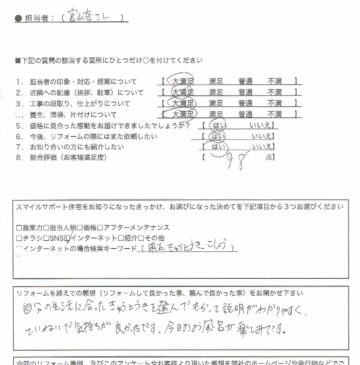 ●担当者：(宮崎さん)
■下記の質問の該当する箇所にひとつだけ○を付けてください
1．担当者の印象・対応・提案について 【大満足 満足 普通 不満】
2．近隣への配慮（挨拶、駐車）について 【大満足 満足 普通 不満】
3．工事の段取り、仕上がりについて 【大満足 満足 普通 不満】
、養生、清掃、片付けについて 【大満足 満足 普通 不満】
5．価格に見合った感動をお届けできましたでしょうか？ 【はい いいえ】
6．今後、リフォームの際にはまた依頼したい 【はい いいえ】
7．お知り合いの方にも紹介したい 【はい いいえ】
8．総合評価（お客様満足度） 【98 点】
スマイルサポート住宅をお知りになったきっかけ、お選びになった決めてを下記項目から3つお選びください
□提案力□担当人柄□価格□アフターメンテナンス
□チラシ□SNS□インターネット□紹介□その他
インターネットの場合検索キーワード（ ）
リフォームを終えての感想（リフォームして良かった事、頼んで良かった事）をお聞かせ下さい
自分の生活に合ったきゅうとうきを選んでもらって説明がわかりやすく、
ていねいで気持ちが良かったです、今日のお風呂が楽しみです。